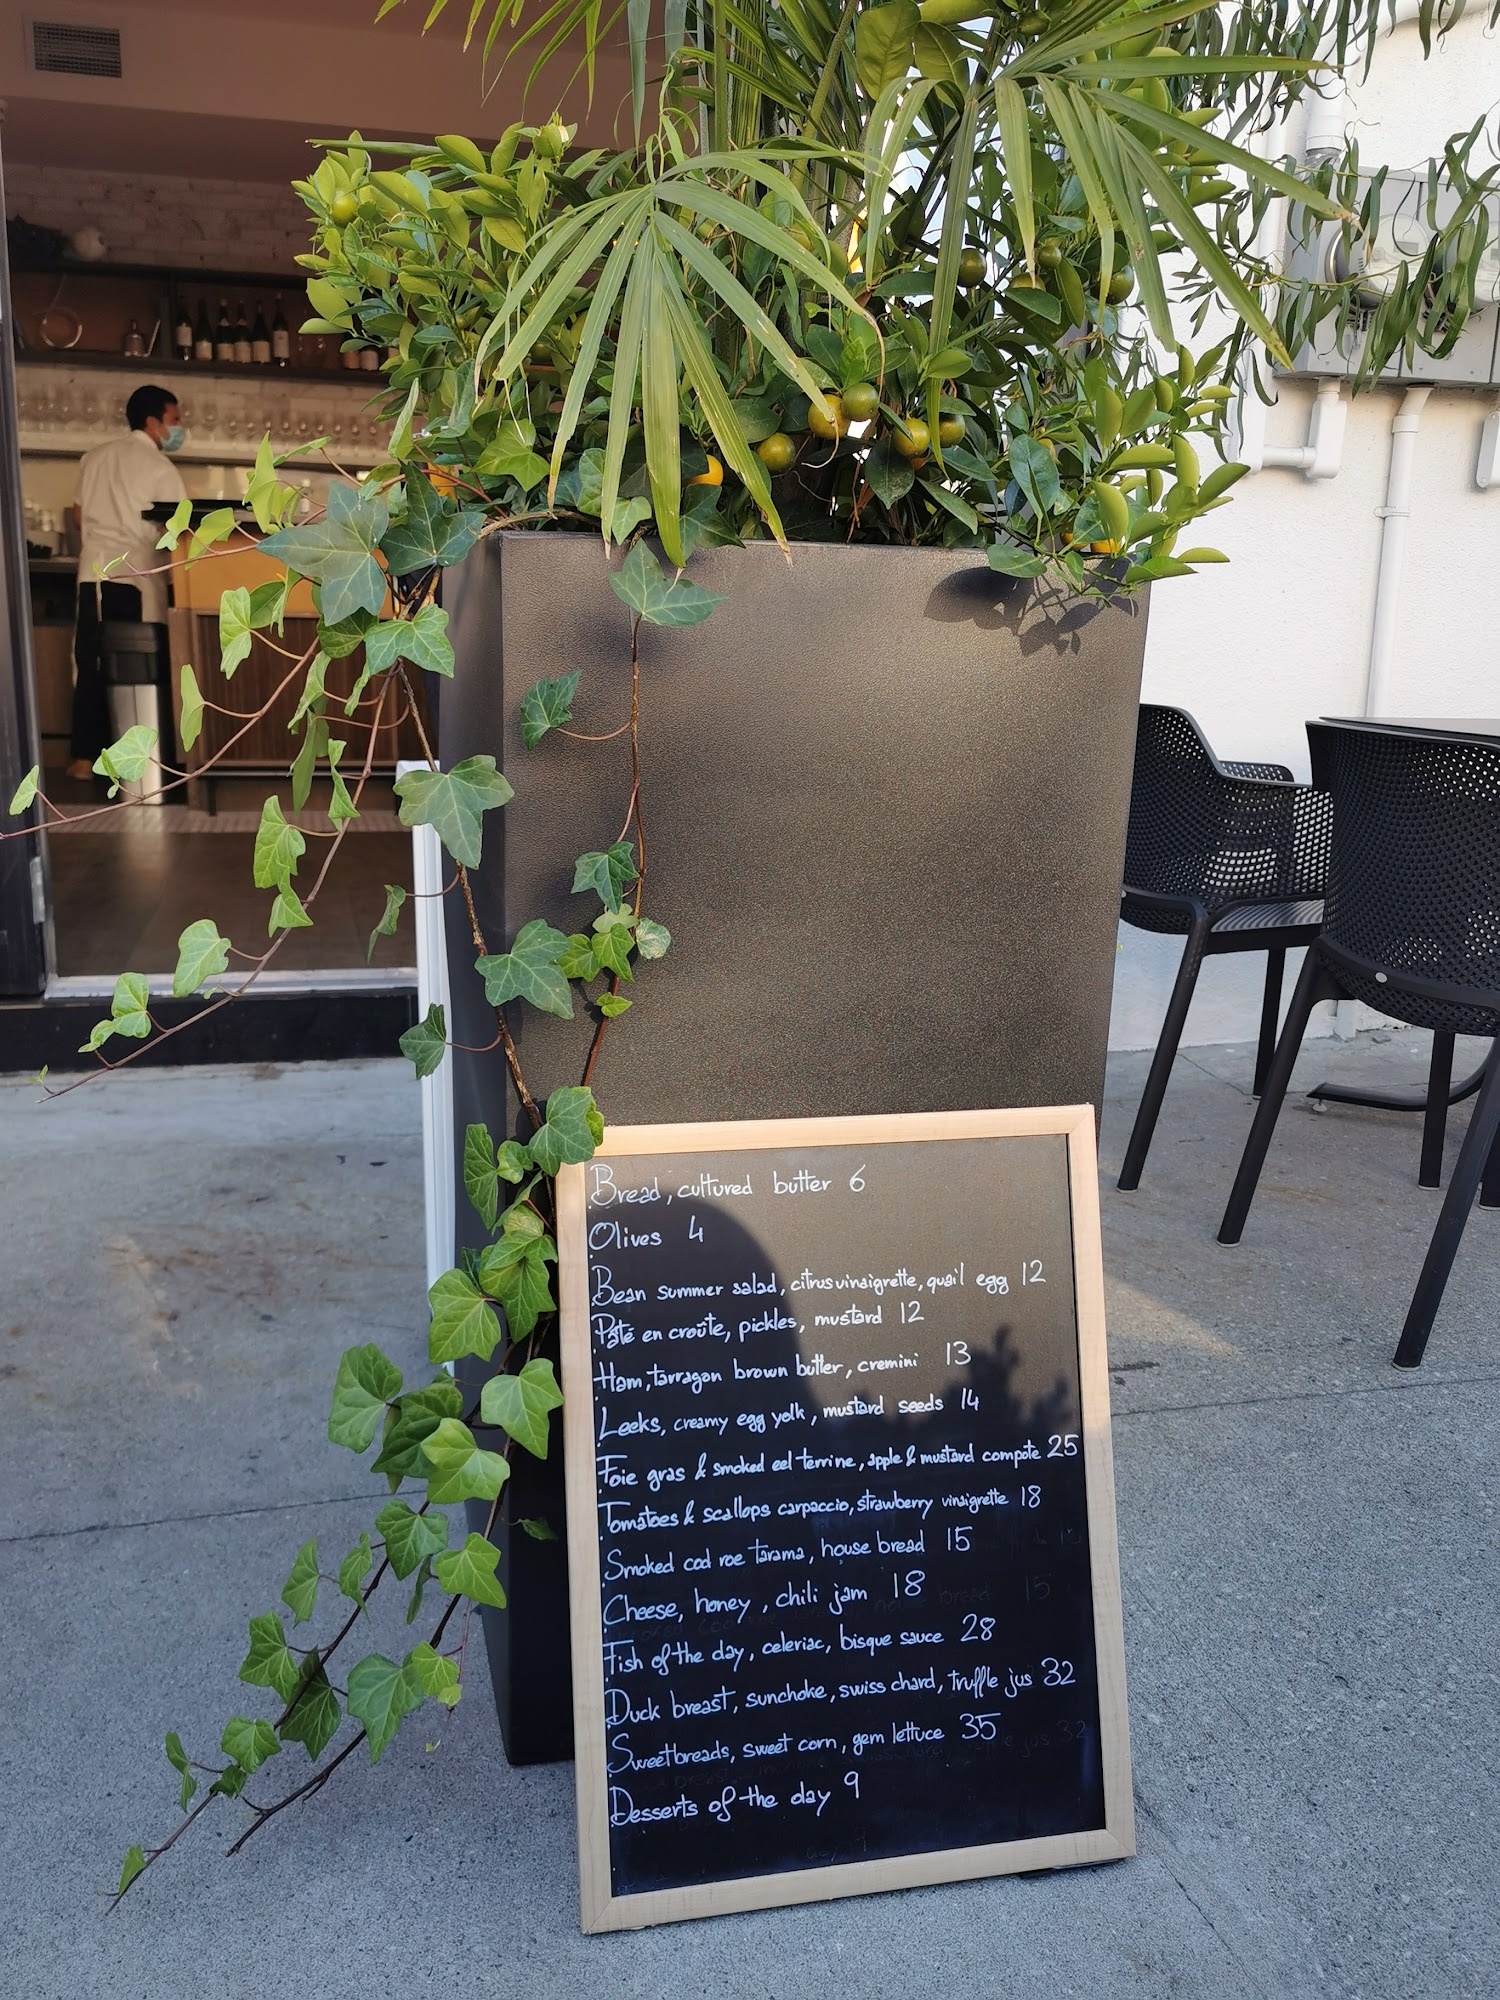 Bread, cultured butter 6
Olives 4
Bean summer salad, citrus vinaigrette, quail egg 12
Pâté en croûte, pickles, mustard 12
Ham, tarragon brown butter, cremini 13
Leeks, creamy egg yolk, mustard seeds 14
Foie gras & smoked eel terrine, apple & mustard compote 25
Tomatoes & scallops carpaccio, strawberry vinaigrette 18
Smoked cod roe tarama, house bread 15
Cheese, honey, chili jam 18
Fish of the day, celeriac, bisque sauce 28
Duck breast, sunchoke, swiss chard, truffle jus 32
Sweetbreads, sweet corn, gem lettuce 35
Desserts of the day 9